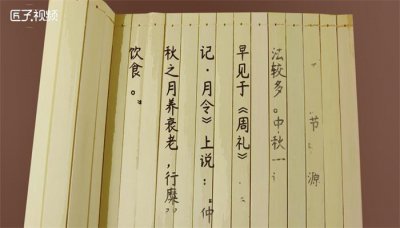 匠子视频
节 源
法较多。中秋一
早见于《周礼》
记·月令》上说:“仲
秋之月养衰老,行糜
饮食。”